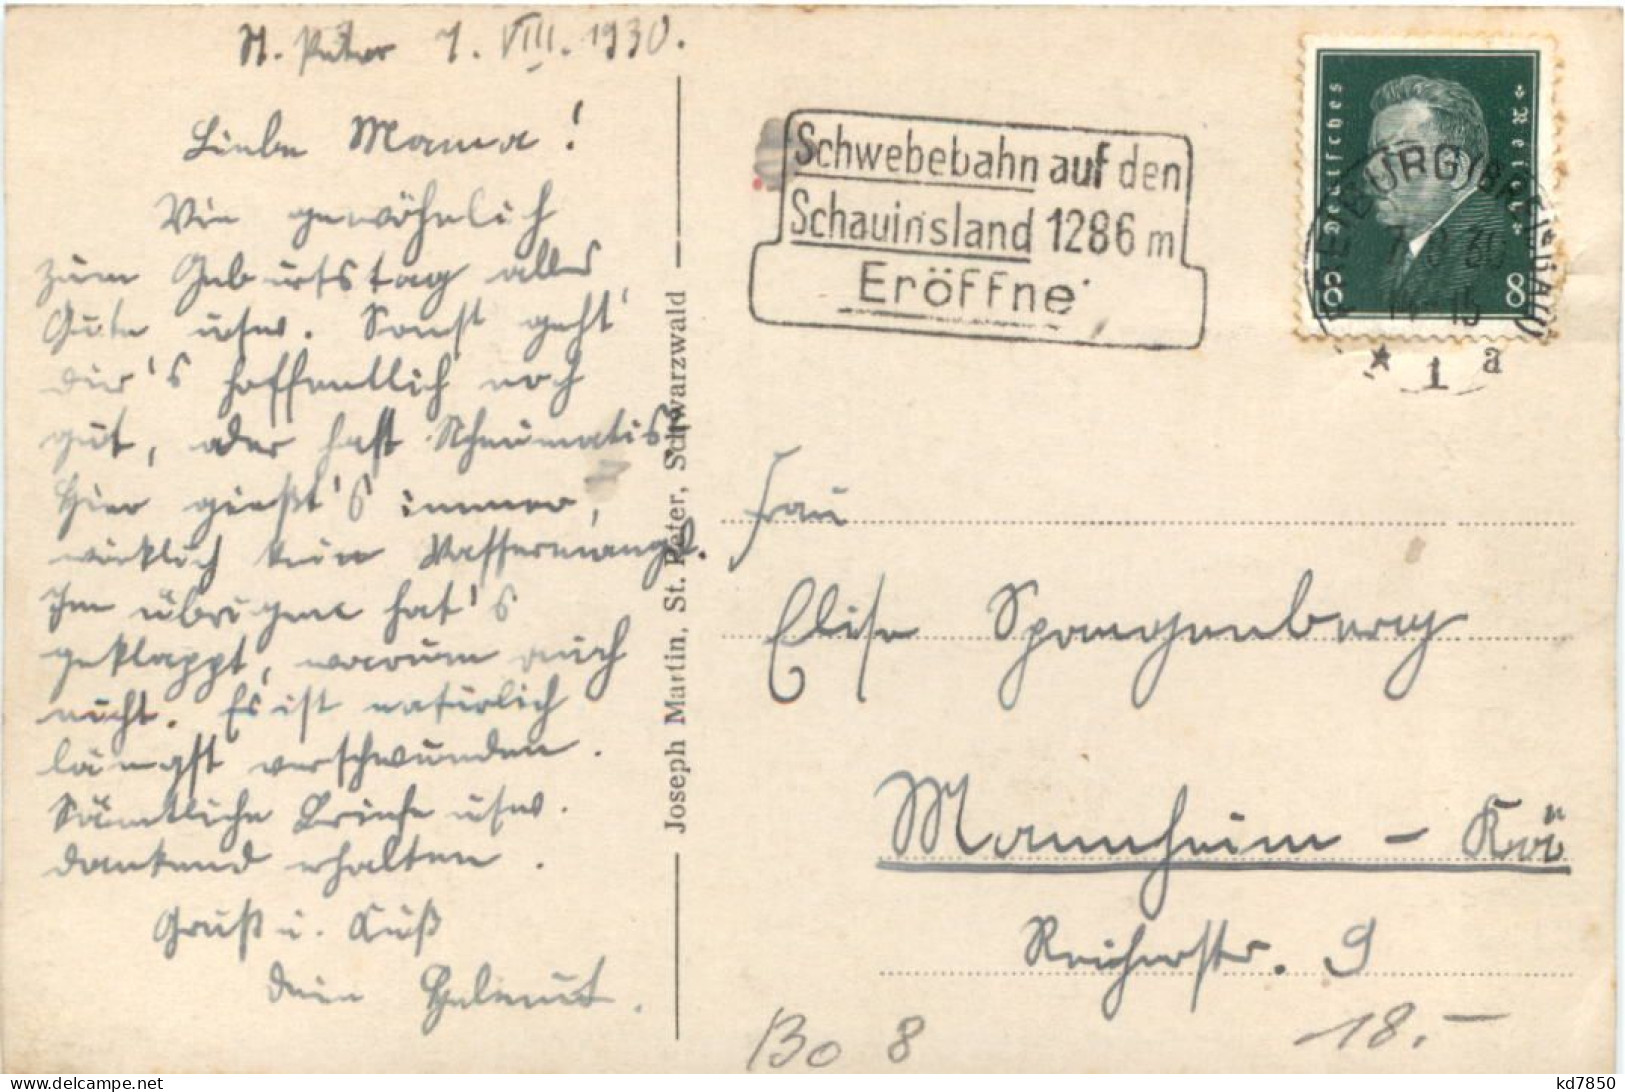 St. Peter 7. VIII. 1930.
Liebe Mama!
Wie gewöhnlich
zum Geburtstag alles
Gute usw. Sonst geht
dir's hoffentlich noch
gut, oder hast Rheumatis.
Hier gießt's immer,
wirklich kein Wassermangel.
Im übrigen hat's
geklappt, warum auch
nicht. Es ist natürlich
längst verschwunden.
Sämtliche Briefe usw.
dankend erhalten.
Gruß u. Kuß
Dein Helmut.
Joseph Martin, St. Peter, Schwarzwald
Schwebebahn auf den
Schauinsland 1286 m
Eröffne
Deutsches Reich
8 8
FREIBURG (BREISGAU)
7.8.30
14-15
* 1 a
Frau
Elise Spangenberg
Mannheim - Kä
Reiherstr. 9
Bo 8
18.-
kd7850